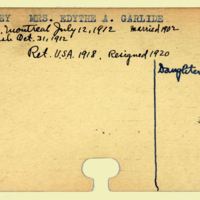 EY MRS. EDYTHE A. GARLIDE
Montreal July 12, 1912 married 1902
Oct. 31, 1912
Ret. U.S.A. 1918, Resigned 1920
Daughter